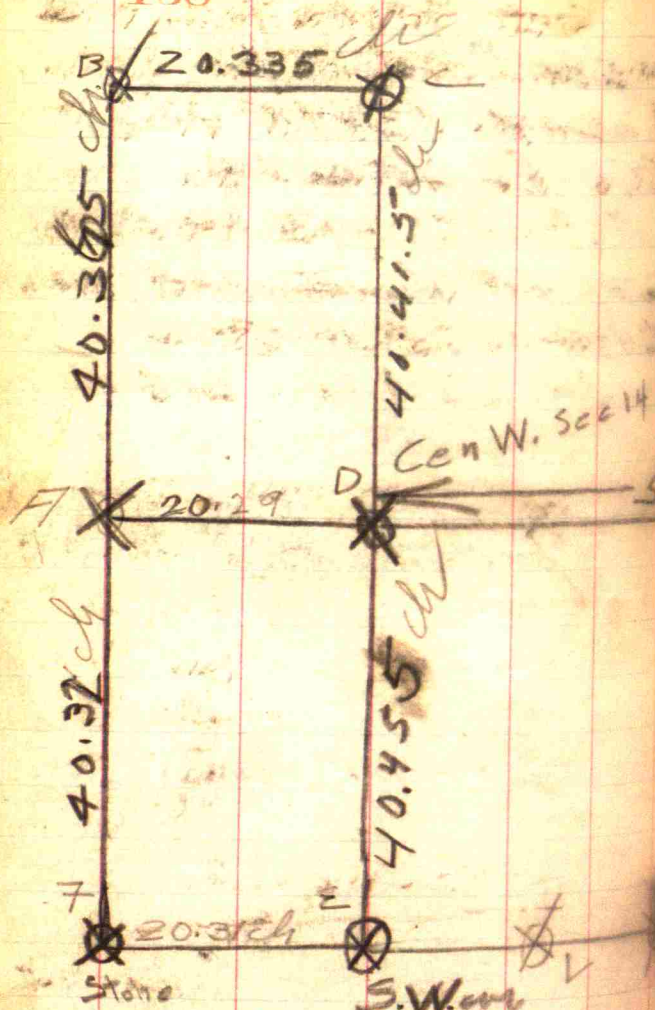 B 20.335 ch C
40.365 ch
40.41.5 ch
Cen W. Sec 14
D
A 20.29
40.32 ch
40.455 ch
7 E
20.31 ch
V
Stone S.W. cor